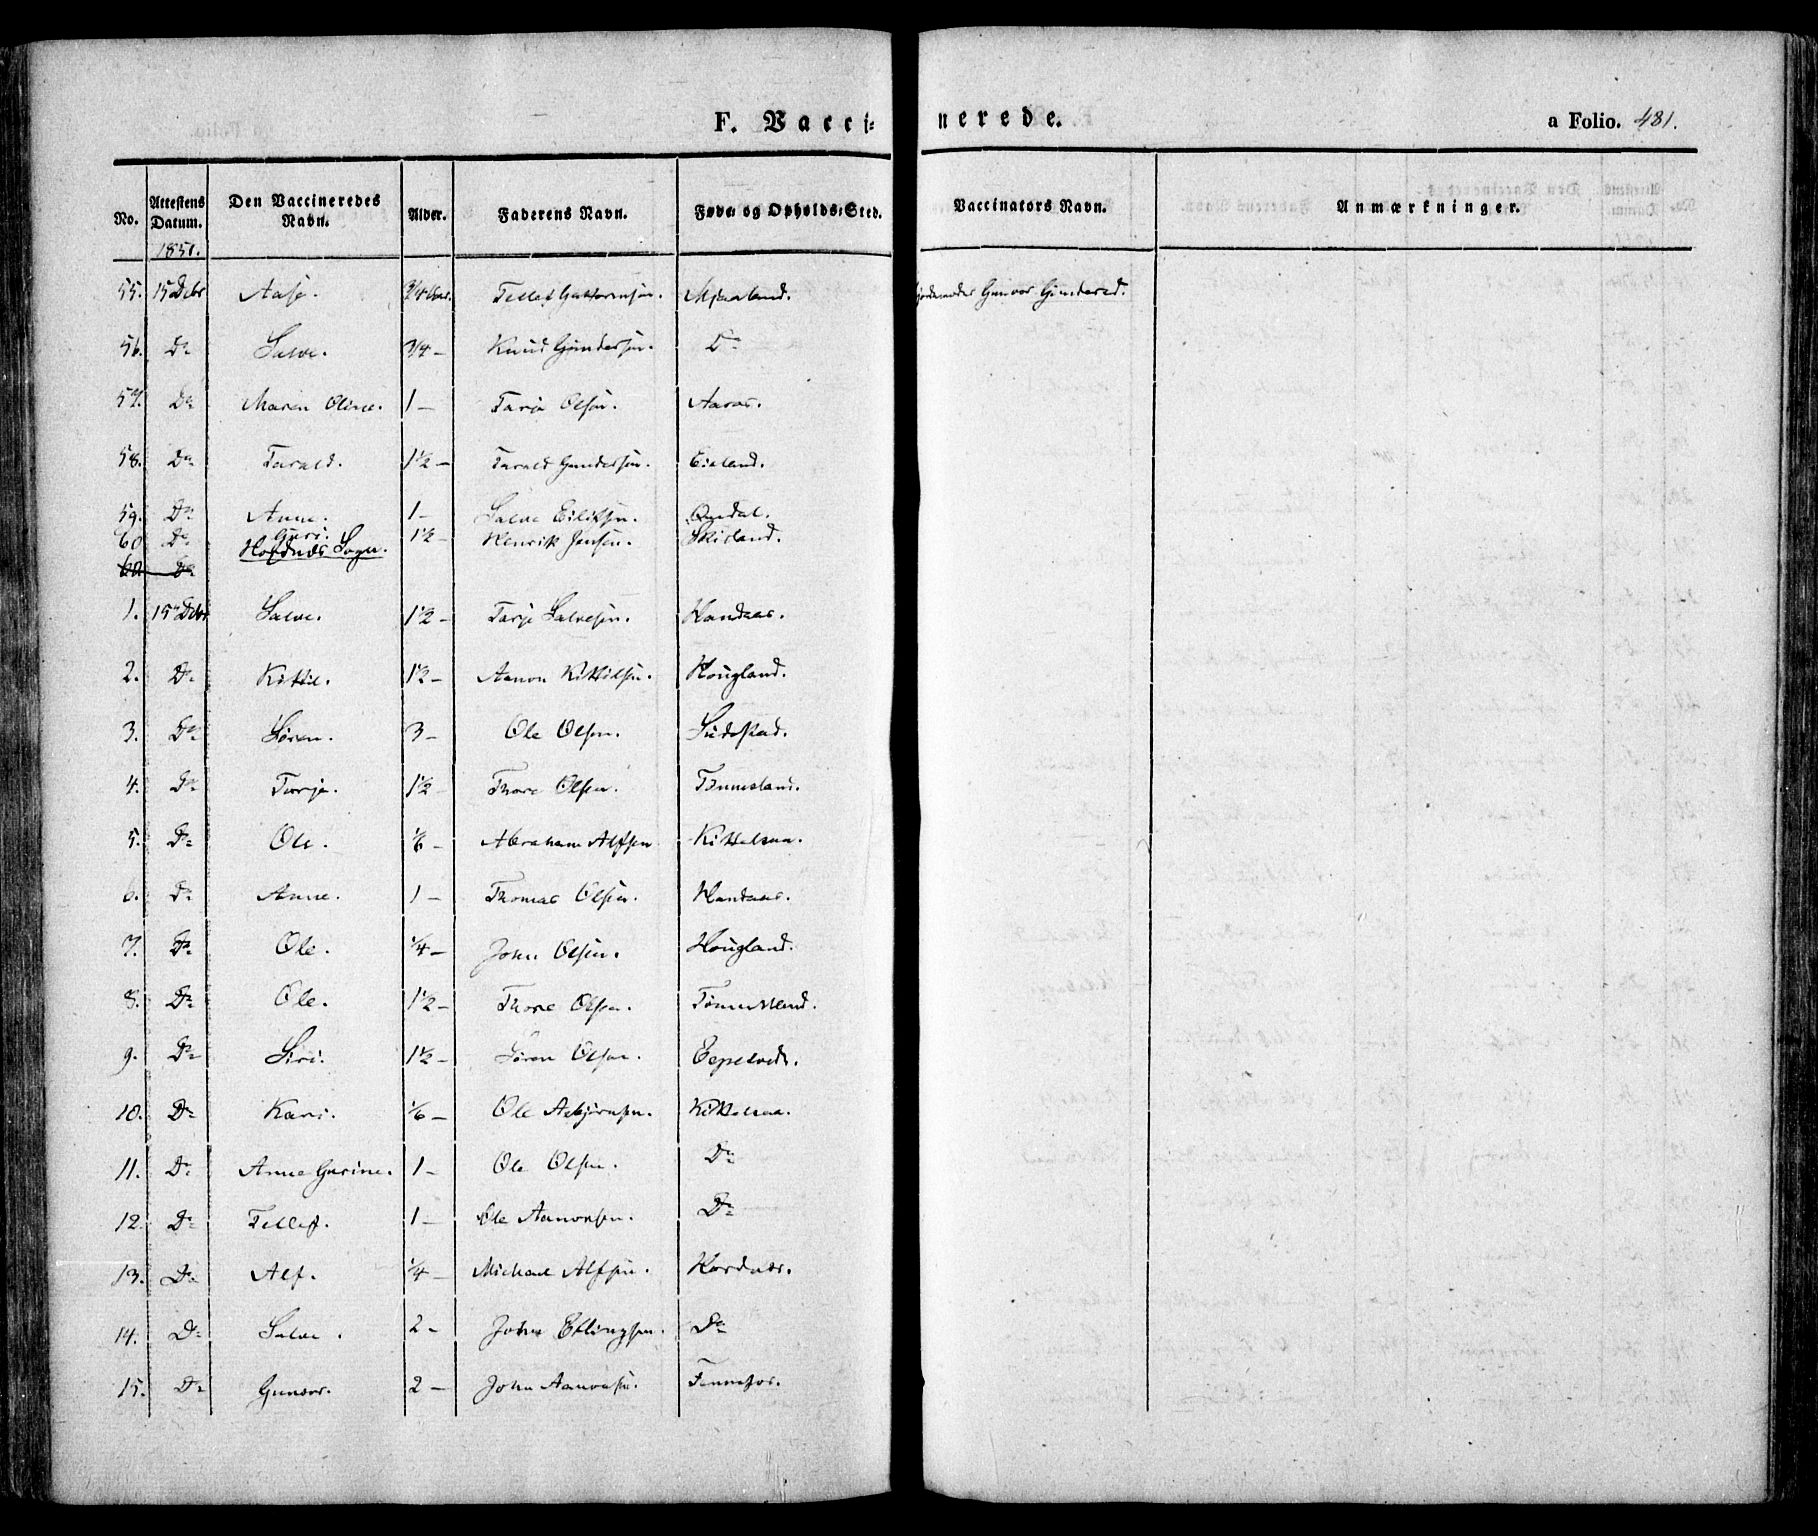 F. Vacci= nerede. a Folio. 481.
No. Attestens Datum. Den Vaccineredes Navn. Alder. Faderens Navn. Føde- og Opholds-Sted. Vaccinators Navn. Anmærkninger.
1851.
55. 15 Debr Aase. 3/4 Aar. Tellef Guttormsen. Mjaaland. Jordemoder Gunvor Gundersd.
56. Do Salve. 3/4 – Knud Gundersen. Do
57. Do Maren Oline. 1 – Tarje Olsen. Aaros.
58. Do Tarald. 1 1/2 – Tarald Gundersen. Eieland.
59. Do Anne. 1 – Salve Eilifsen.
60 Do Guri. 1 1/2 Henrik Jensen. Skisland.
Hordnes Sogn.
60 Do
1. 15 Debr Salve. 1 1/2 – Tarje Salvesen. Handaas.
2. Do Kittil. 1 1/2 – Aanon Kittilsen. Hougland.
3. Do Søren. 3 – Ole Olsen.
4. Do Terje. 1 1/2 Thore Olsen. Tønnesland.
5. Do Ole. 1/6 – Abraham Alfsen Kittelsaa.
6. Do Anne. 1 – Thomas Olsen. Handaas.
7. Do Ole. 1/4 – John Olsen. Hougland.
8. Do Ole. 1 1/2 – Thore Olsen. Tønnesland.
9. Do Siri. 1 1/2 – Søren Olsen. Eepelveds.
10. Do Kari. 1/6 – Ole Asbjørnsen. Kittelsaa.
11. Do Anne Gurine. 1 – Ole Olsen. Do
12. Do Tellef. 1 – Ole Aanonsen. Do
13. Do Alf. 1/4 – Michael Alfsen. Hordnes.
14. Do Salve. 2 – John Ellingsen. Do
15. Do Gunvor. 2 – John Aanonsen. Fennefos.